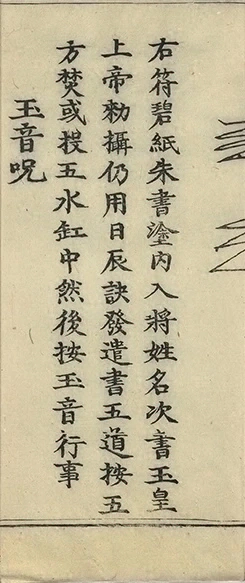 右符碧紙朱書塗内入將姓名次書玉皇
上帝勑攝仍用日辰訣發遣書五道按五
方焚或投五水缸中然後按玉音行事
玉音呪